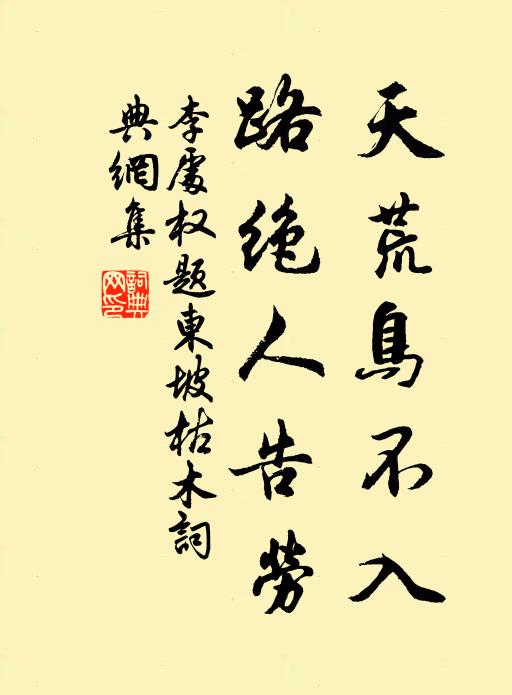 天荒鳥不入
路絕人告勞
李處权题東坡枯木詞
典網集
詞典網印